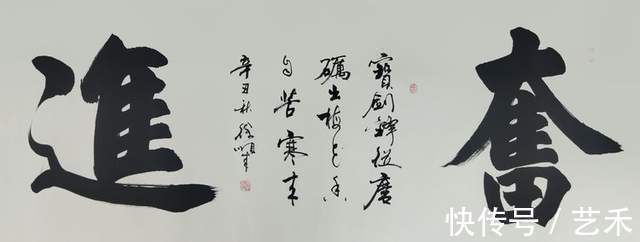 奮
寶劍鋒從磨
礪出梅花香
自苦寒來
辛丑秋徐
進
快传号 / 艺禾